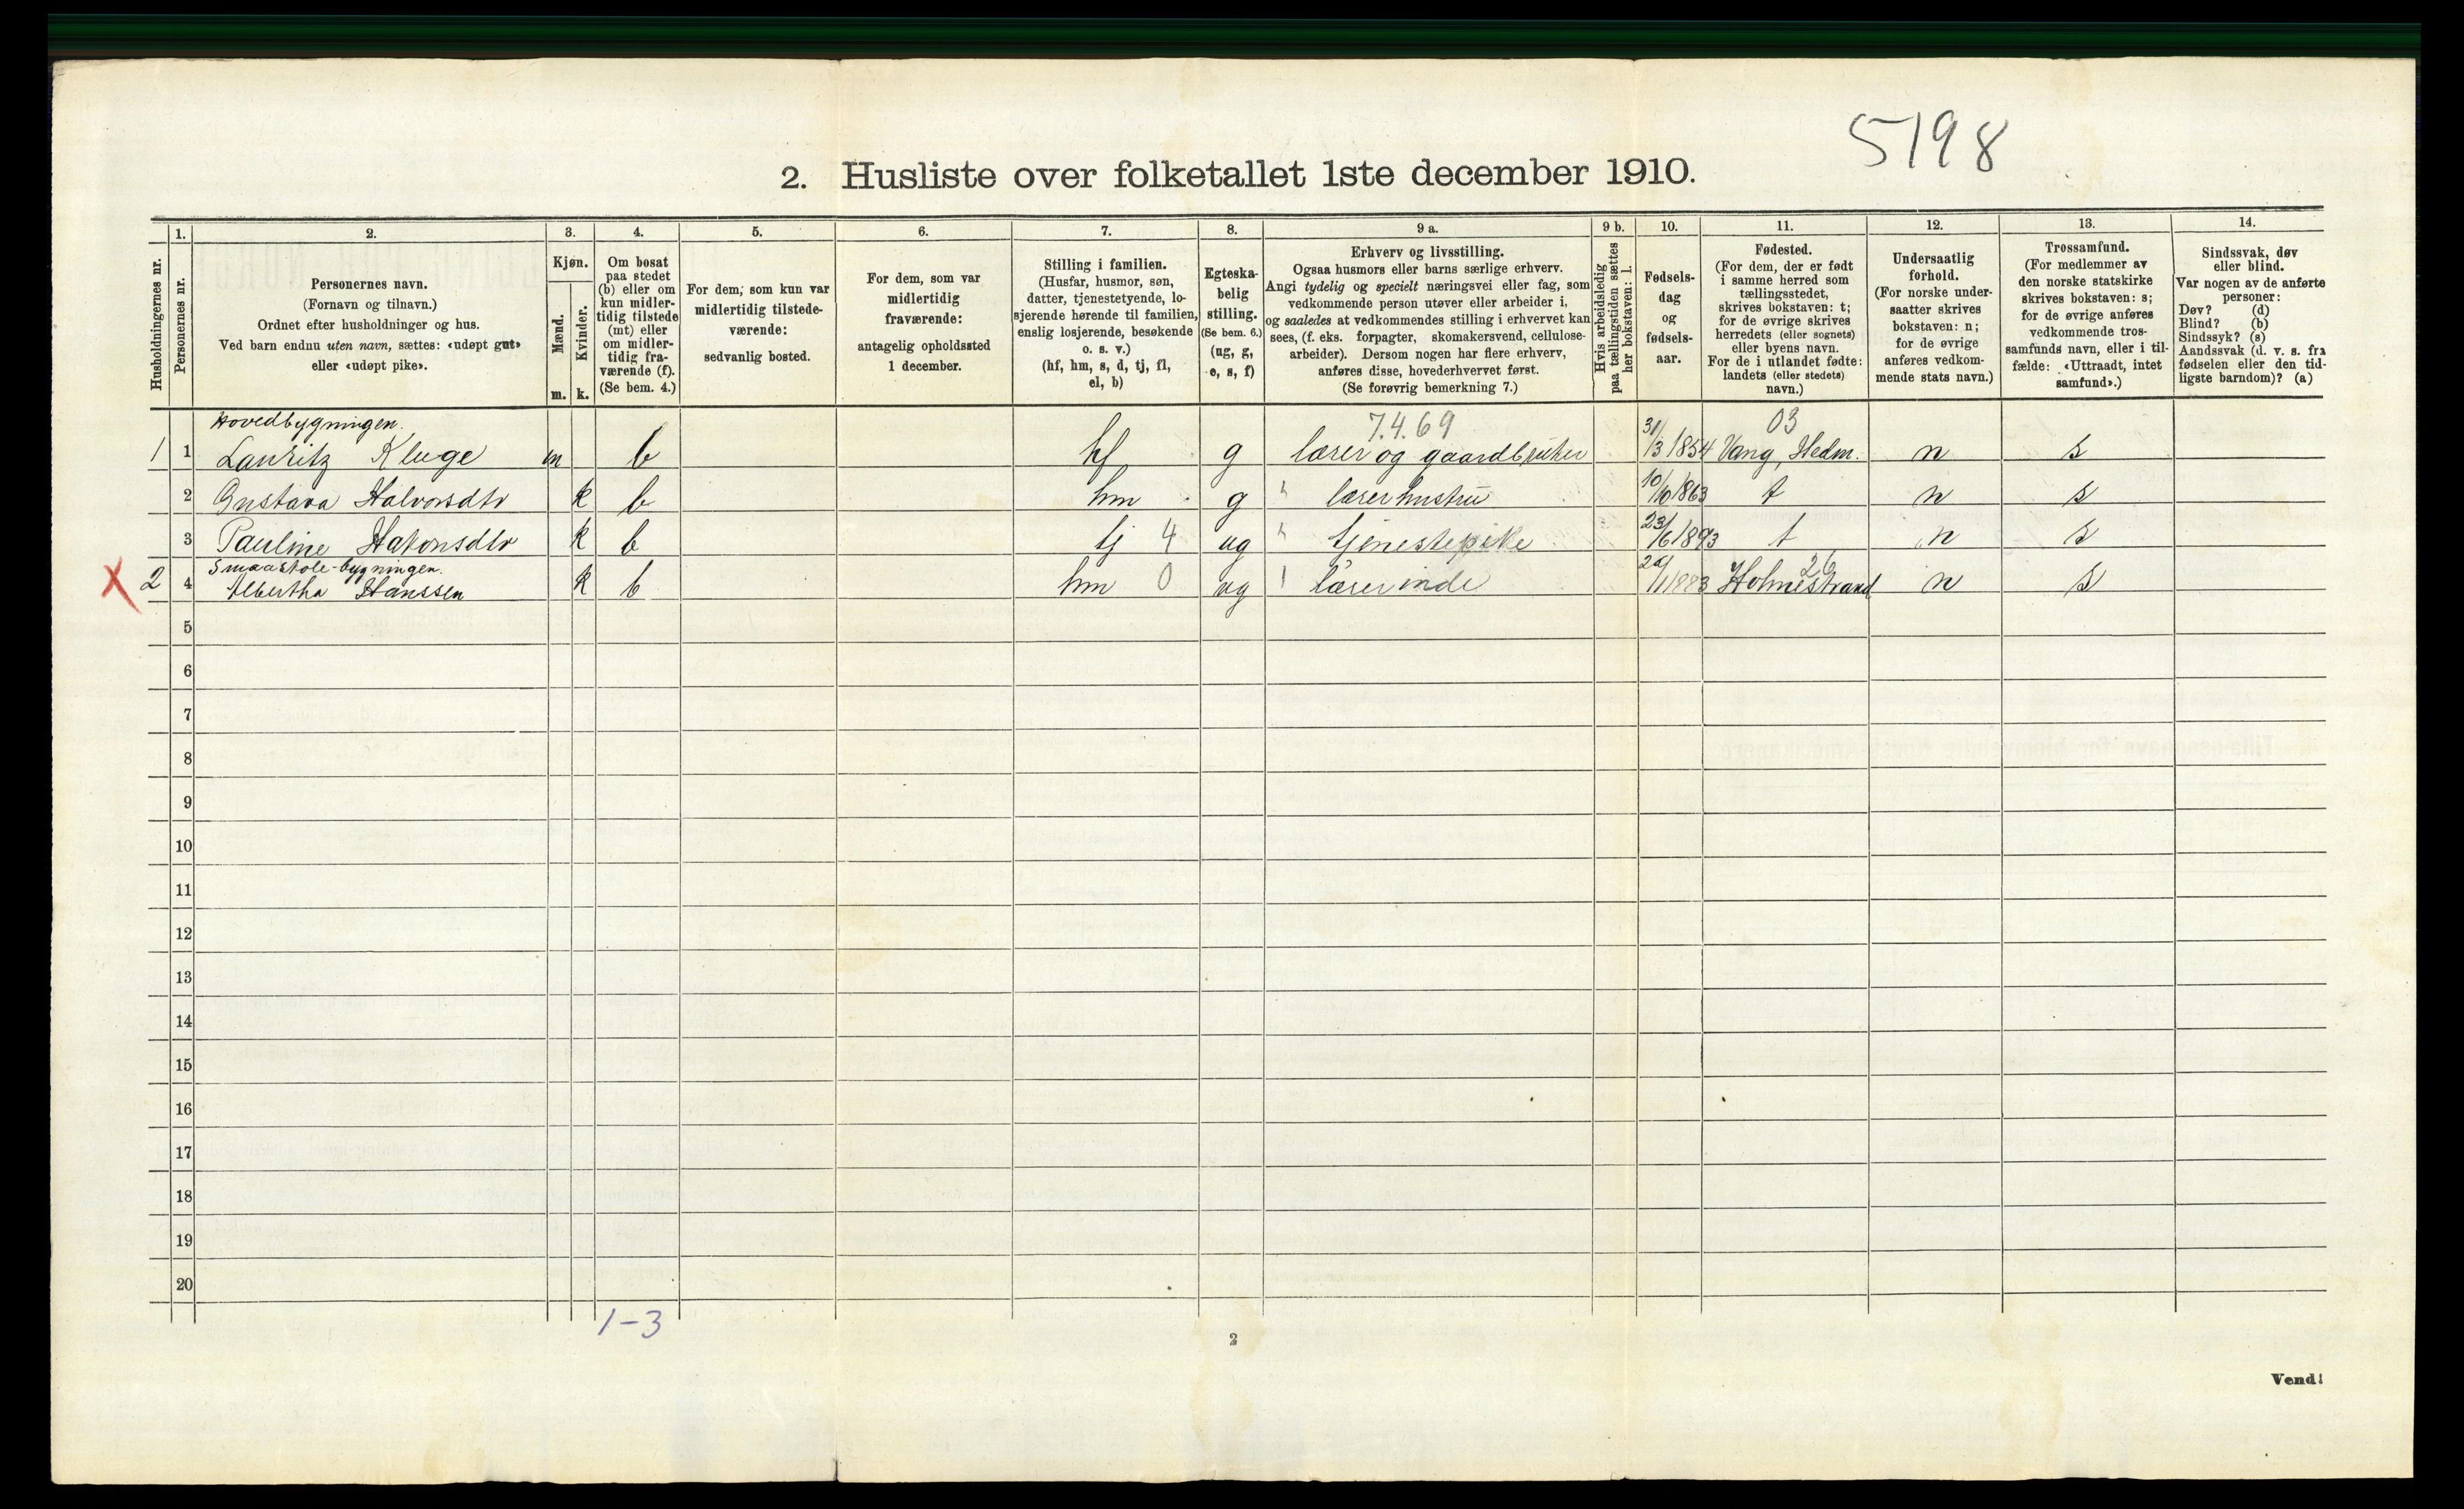 5198
2. Husliste over folketallet 1ste december 1910.
Husholdningernes nr.
1.
Personernes nr.
2.
Personernes navn.
(Fornavn og tilnavn.)
Ordnet efter husholdninger og hus.
Ved barn endnu uten navn, sættes: «udøpt gut»
eller «udøpt pike».
3.
Kjøn.
Mænd.
Kvinder.
m. k.
4.
Om bosat
paa stedet
(b) eller om
kun midler-
tidig tilstede
(mt) eller
om midler-
tidig fra-
værende (f).
(Se bem. 4.)
5.
For dem, som kun var
midlertidig tilstede-
værende:
sedvanlig bosted.
6.
For dem, som var
midlertidig
fraværende:
antagelig opholdssted
1 december.
7.
Stilling i familien.
(Husfar, husmor, søn,
datter, tjenestetyende, lo-
sjerende hørende til familien,
enslig losjerende, besøkende
o. s. v.)
(hf, hm, s, d, tj, fl,
el, b)
8.
Egteska-
belig
stilling.
(Se bem. 6.)
(ug, g,
e, s, f)
9 a.
Erhverv og livsstilling.
Ogsaa husmors eller barns særlige erhverv.
Angi tydelig og specielt næringsvei eller fag, som
vedkommende person utøver eller arbeider i,
og saaledes at vedkommendes stilling i erhvervet kan
sees, (f. eks. forpagter, skomakersvend, cellulose-
arbeider). Dersom nogen har flere erhverv,
anføres disse, hovederhvervet først.
(Se forøvrig bemerkning 7.)
9 b.
Hvis arbeidsledig
paa tællingstiden sættes
her bokstaven: l.
10.
Fødsels-
dag
og
fødsels-
aar.
11.
Fødested.
(For dem, der er født
i samme herred som
tællingsstedet,
skrives bokstaven: t;
for de øvrige skrives
herredets (eller sognets)
eller byens navn.
For de i utlandet fødte:
landets (eller stedets)
navn.)
12.
Undersaatlig
forhold.
(For norske under-
saatter skrives
bokstaven: n;
for de øvrige
anføres vedkom-
mende stats navn.)
13.
Trossamfund.
(For medlemmer av
den norske statskirke
skrives bokstaven: s;
for de øvrige anføres
vedkommende tros-
samfunds navn, eller i til-
fælde: «Uttraadt, intet
samfund».)
14.
Sindssvak, døv
eller blind.
Var nogen av de anførte
personer:
Døv? (d)
Blind? (b)
Sindssyk? (s)
Aandssvak (d. v. s. fra
fødselen eller den tid-
ligste barndom)? (a)
Hovedbygningen. 7.4.69 03
1 1 Lauritz Kluge m b hf g lærer og gaardbruker 31/3 1854 Vang, Hedm. n s
2 Gustava Halvorsdtr k b hm g " lærerhustru 10/10 1863 t n s
3 Pauline Hakonsdtr k b tj 4 ug " tjenestepike 23/6 1893 t n s
Smaaskole-bygningen. 26
X 2 4 Albertha Hanssen k b hm 0 ug lærerinde /1 1883 Holmestrand n s
5
6
7
8
9
10
11
12
13
14
15
16
17
18
19
20
1-3
2
Vend!